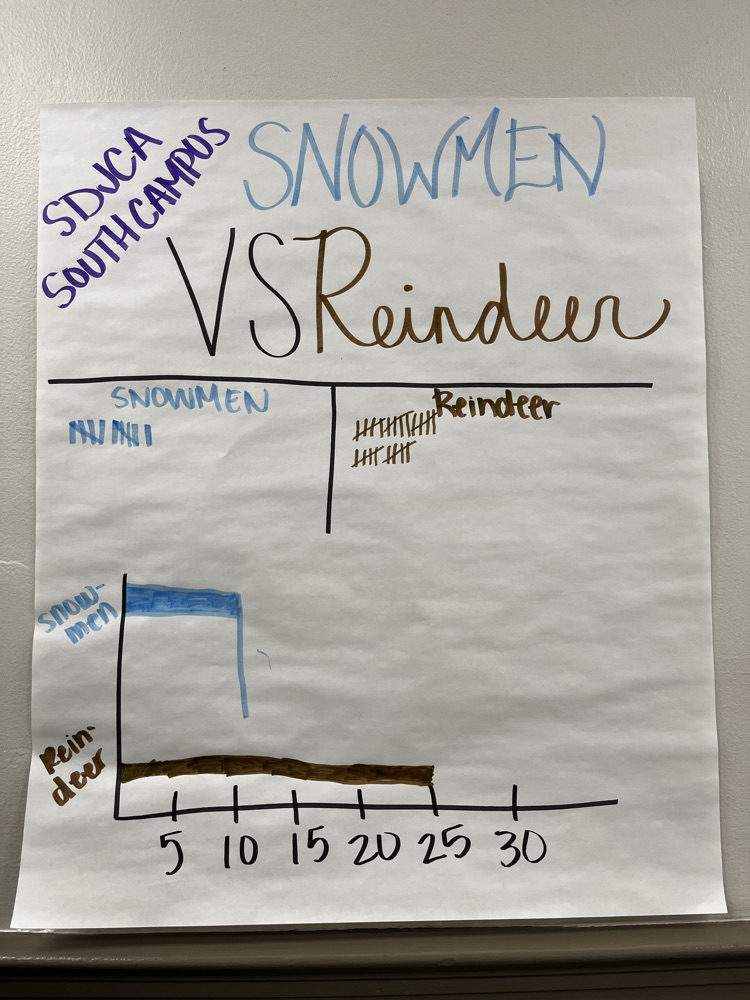 SDJCA
SOUTH CAMPUS
SNOWMEN
VS Reindeer
SNOWMEN
Reindeer
Snow-
men
Rein-
deer
5 10 15 20 25 30